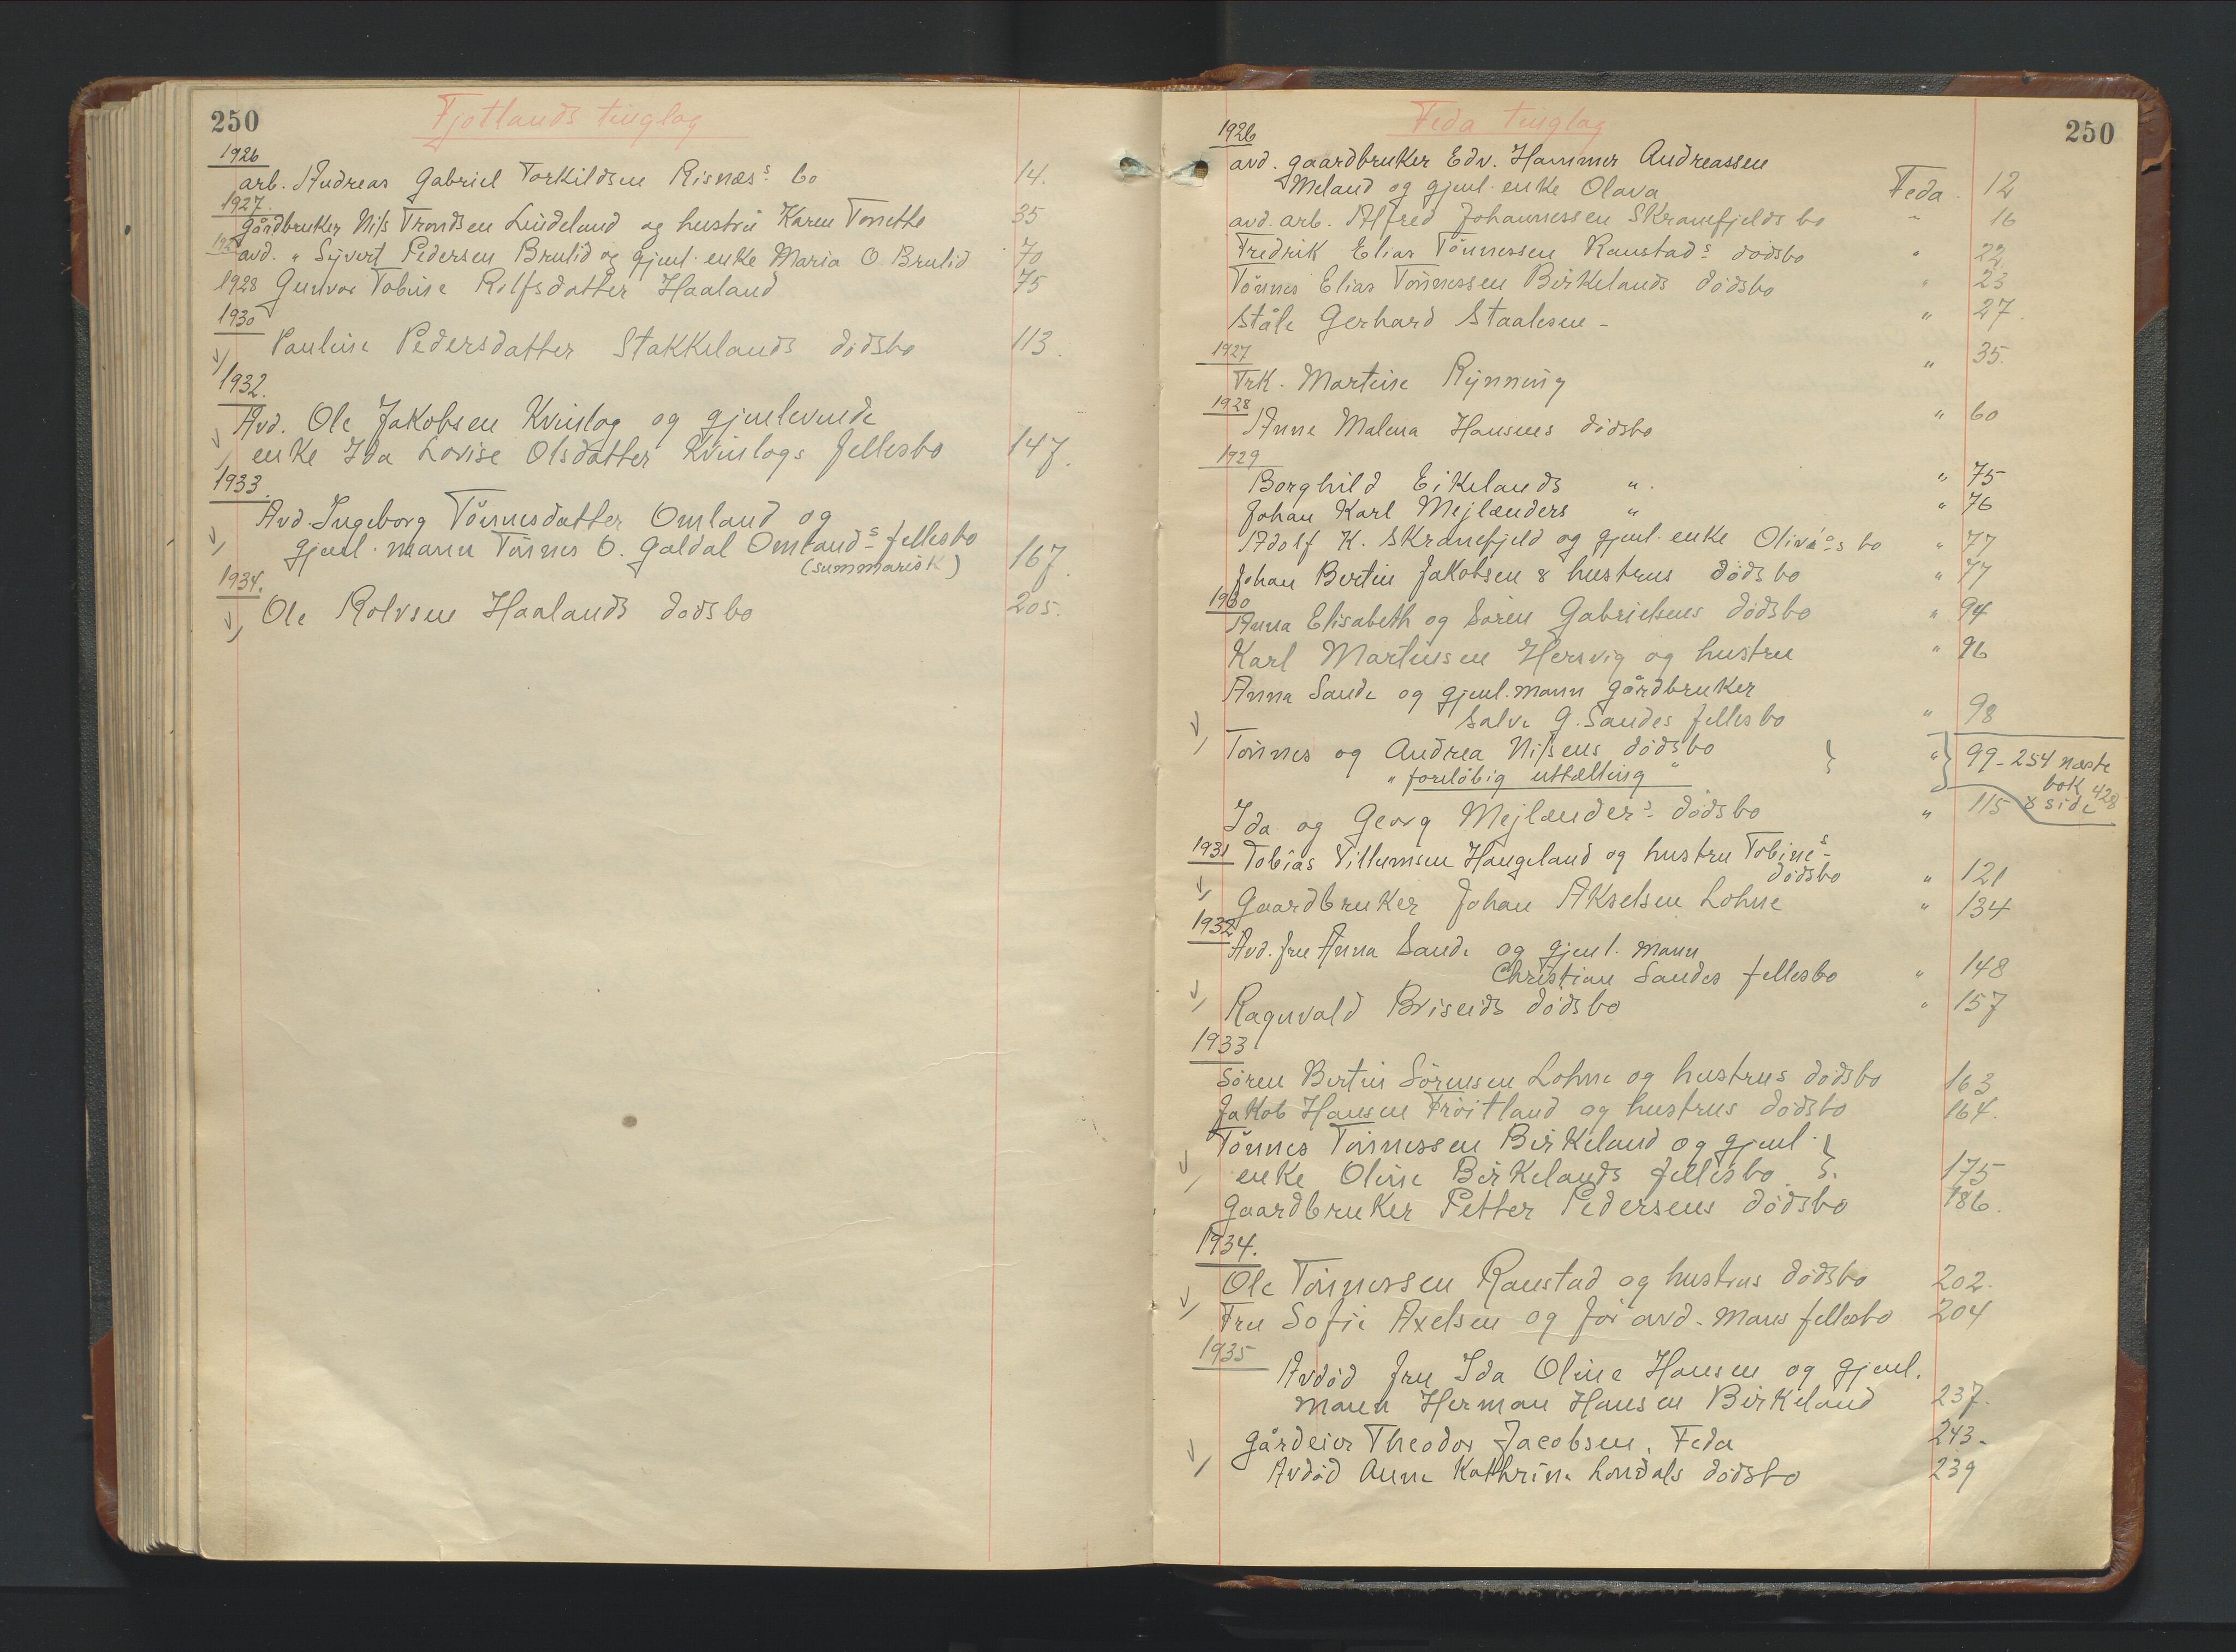 250
Fjotlands tinglag
1926
arb. Andreas Gabriel Torkildsen Risnæs's bo 14.
1927.
Gårdbruker Nils Trondsen Lindeland og hustru Karen Tonette 35
avd. " Syvert Pedersen Brulid og gjenl. enke Maria O. Brulid 70
1928 Gunvor Tobine Rolfsdatter Haaland 75
1930
Pauline Pedersdatter Stakkelands dødsbo 113.
1932.
Avd. Ole Jakobsen Kvinlog og gjenlevende
enke Ida Lovise Olsdatter Kvinlogs fellesbo 147.
1933.
Avd. Ingeborg Tönnesdatter Omland og
gjenl. mann Tönnes O. Galdal Omland's fellesbo
(summarisk) 167.
1934.
Ole Rolvsen Haalands dødsbo 205.
250
Feda tinglag
1926
avd. gaardbruker Edv. Hammer Andreassen
Meland og gjenl. enke Olava Feda. 12
avd. arb. Alfred Johannessen Skranefjelds bo " 16
Fredrik Elias Tönnessen Ranstad's dødsbo " 22.
Tönnes Elias Tönnessen Birkelands dødsbo " 23
Ståle Gerhard Staalesen - " 27.
1927
Frk. Martine Rynning " 35.
1928
Anne Malena Hansens dødsbo " 60
1929
Borghild Eikelands " " 75
Johan Karl Mejlænders " " 76
Adolf K. Skranefjeld og gjenl. enke Olivia's bo " 77
Johan Bertin Jakobsen & hustrus dødsbo " 77
1930
Anna Elisabeth og Sören Gabrielsens dødsbo " 94
Karl Martinsen Hersvig og hustru " 96
Anna Sande og gjenl. mann gårdbruker
Salve G. Sandes fellesbo " 98
Tönnes og Andrea Nilsens dødsbo } " } 99 - 254 næste
" foreløbig uttælling " bok 428
& side
Ida og Georg Mejlænder's dødsbo " 115
1931 Tobias Villumsen Haugeland og hustru Tobine's
dødsbo " 121
Gaardbruker Johan Akselsen Lohne " 134
1932
Avd. fru Anna Sande og gjenl. mann
Christian Sandes fellesbo " 148
Ragnvald Briseids dødsbo " 157
1933
Sören Bertin Sörensen Lohne og hustrus dødsbo 163
Jakob Hansen Frøitland og hustrus dødsbo 164.
Tönnes Tönnessen Birkeland og gjenl. }
enke Oline Birkelands fellesbo } 175
Gaardbruker Petter Pedersens dødsbo 186.
1934.
Ole Tönnessen Ranstad og hustrus dødsbo 202.
Fru Sofie Axelsen og før avd. mans fellesbo 204
1935
Avdød fru Ida Oline Hansen og gjenl.
mann Herman Hansen Birkeland 237.
Gårdeier Theodor Jacobsen, Feda 243.
Avdød Anne Kathrine Londals dødsbo 239